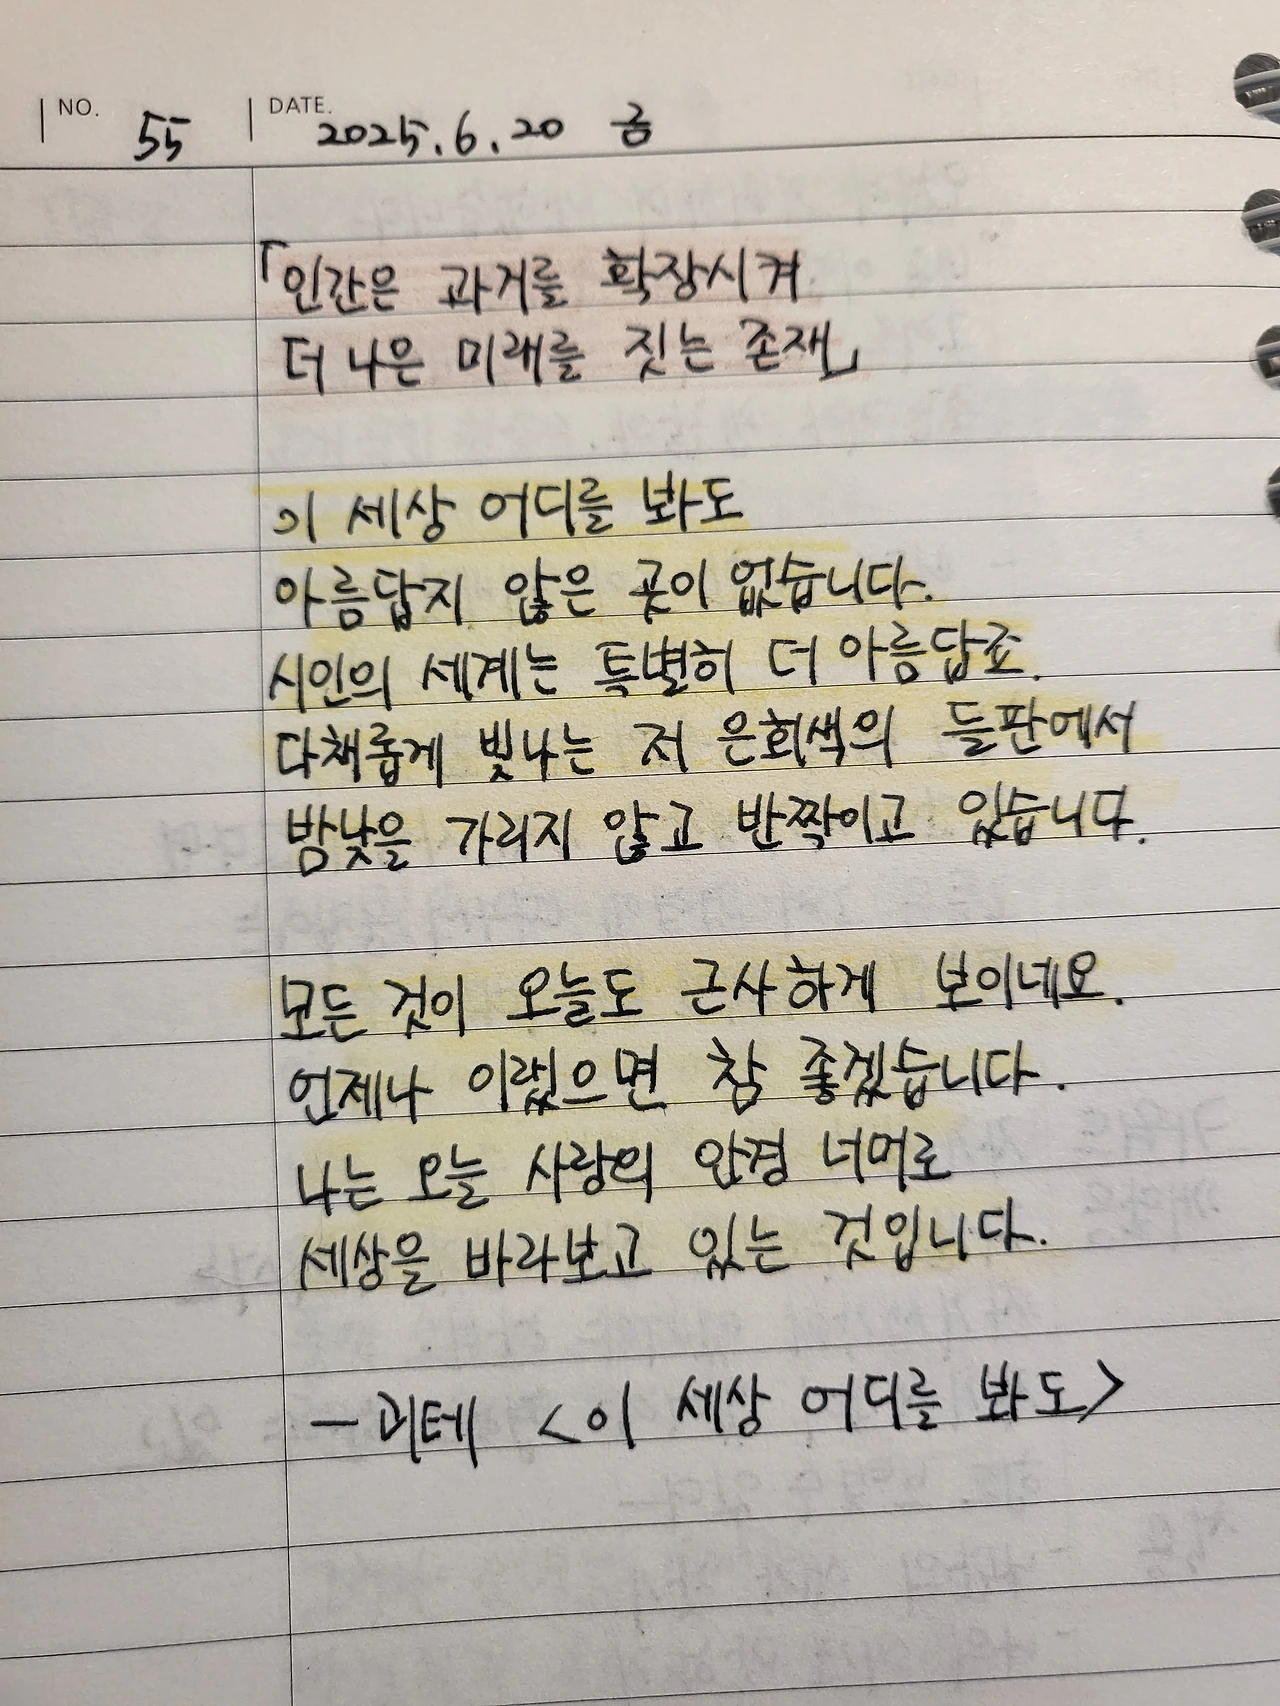 NO. 55 DATE. 2025. 6. 20 금
「인간은 과거를 확장시켜
더 나은 미래를 짓는 존재」
이 세상 어디를 봐도
아름답지 않은 곳이 없습니다.
시인의 세계는 특별히 더 아름답죠.
다채롭게 빛나는 저 은회색의 들판에서
밤낮을 가리지 않고 반짝이고 있습니다.
모든 것이 오늘도 근사하게 보이네요.
언제나 이랬으면 참 좋겠습니다.
나는 오늘 사랑의 안경 너머로
세상을 바라보고 있는 것입니다.
— 괴테 <이 세상 어디를 봐도>